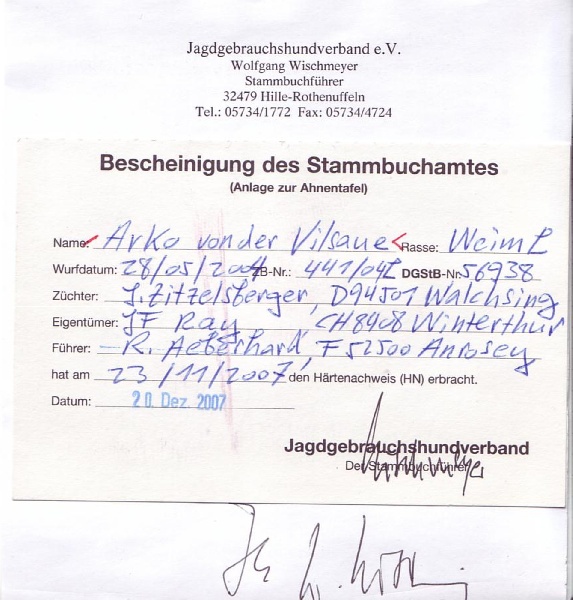 Jagdgebrauchshundverband e.V.
Wolfgang Wischmeyer
Stammbuchführer
32479 Hille-Rothenuffeln
Tel.: 05734/1772 Fax: 05734/4724
Bescheinigung des Stammbuchamtes
(Anlage zur Ahnentafel)
Name: Arko von der Vilsaue Rasse: Weim L
Wurfdatum: 28/05/2004 ZB-Nr.: 441/04L DGStB-Nr. 56938
Züchter: J. Zitzelsberger, D94501 Walchsing
Eigentümer: JF Ray, CH8408 Winterthur
Führer: R. Aeberhard, F52500 Anrosey
hat am 23/11/2007 den Härtenachweis (HN) erbracht.
Datum: 20. Dez. 2007
Jagdgebrauchshundverband
Der Stammbuchführer